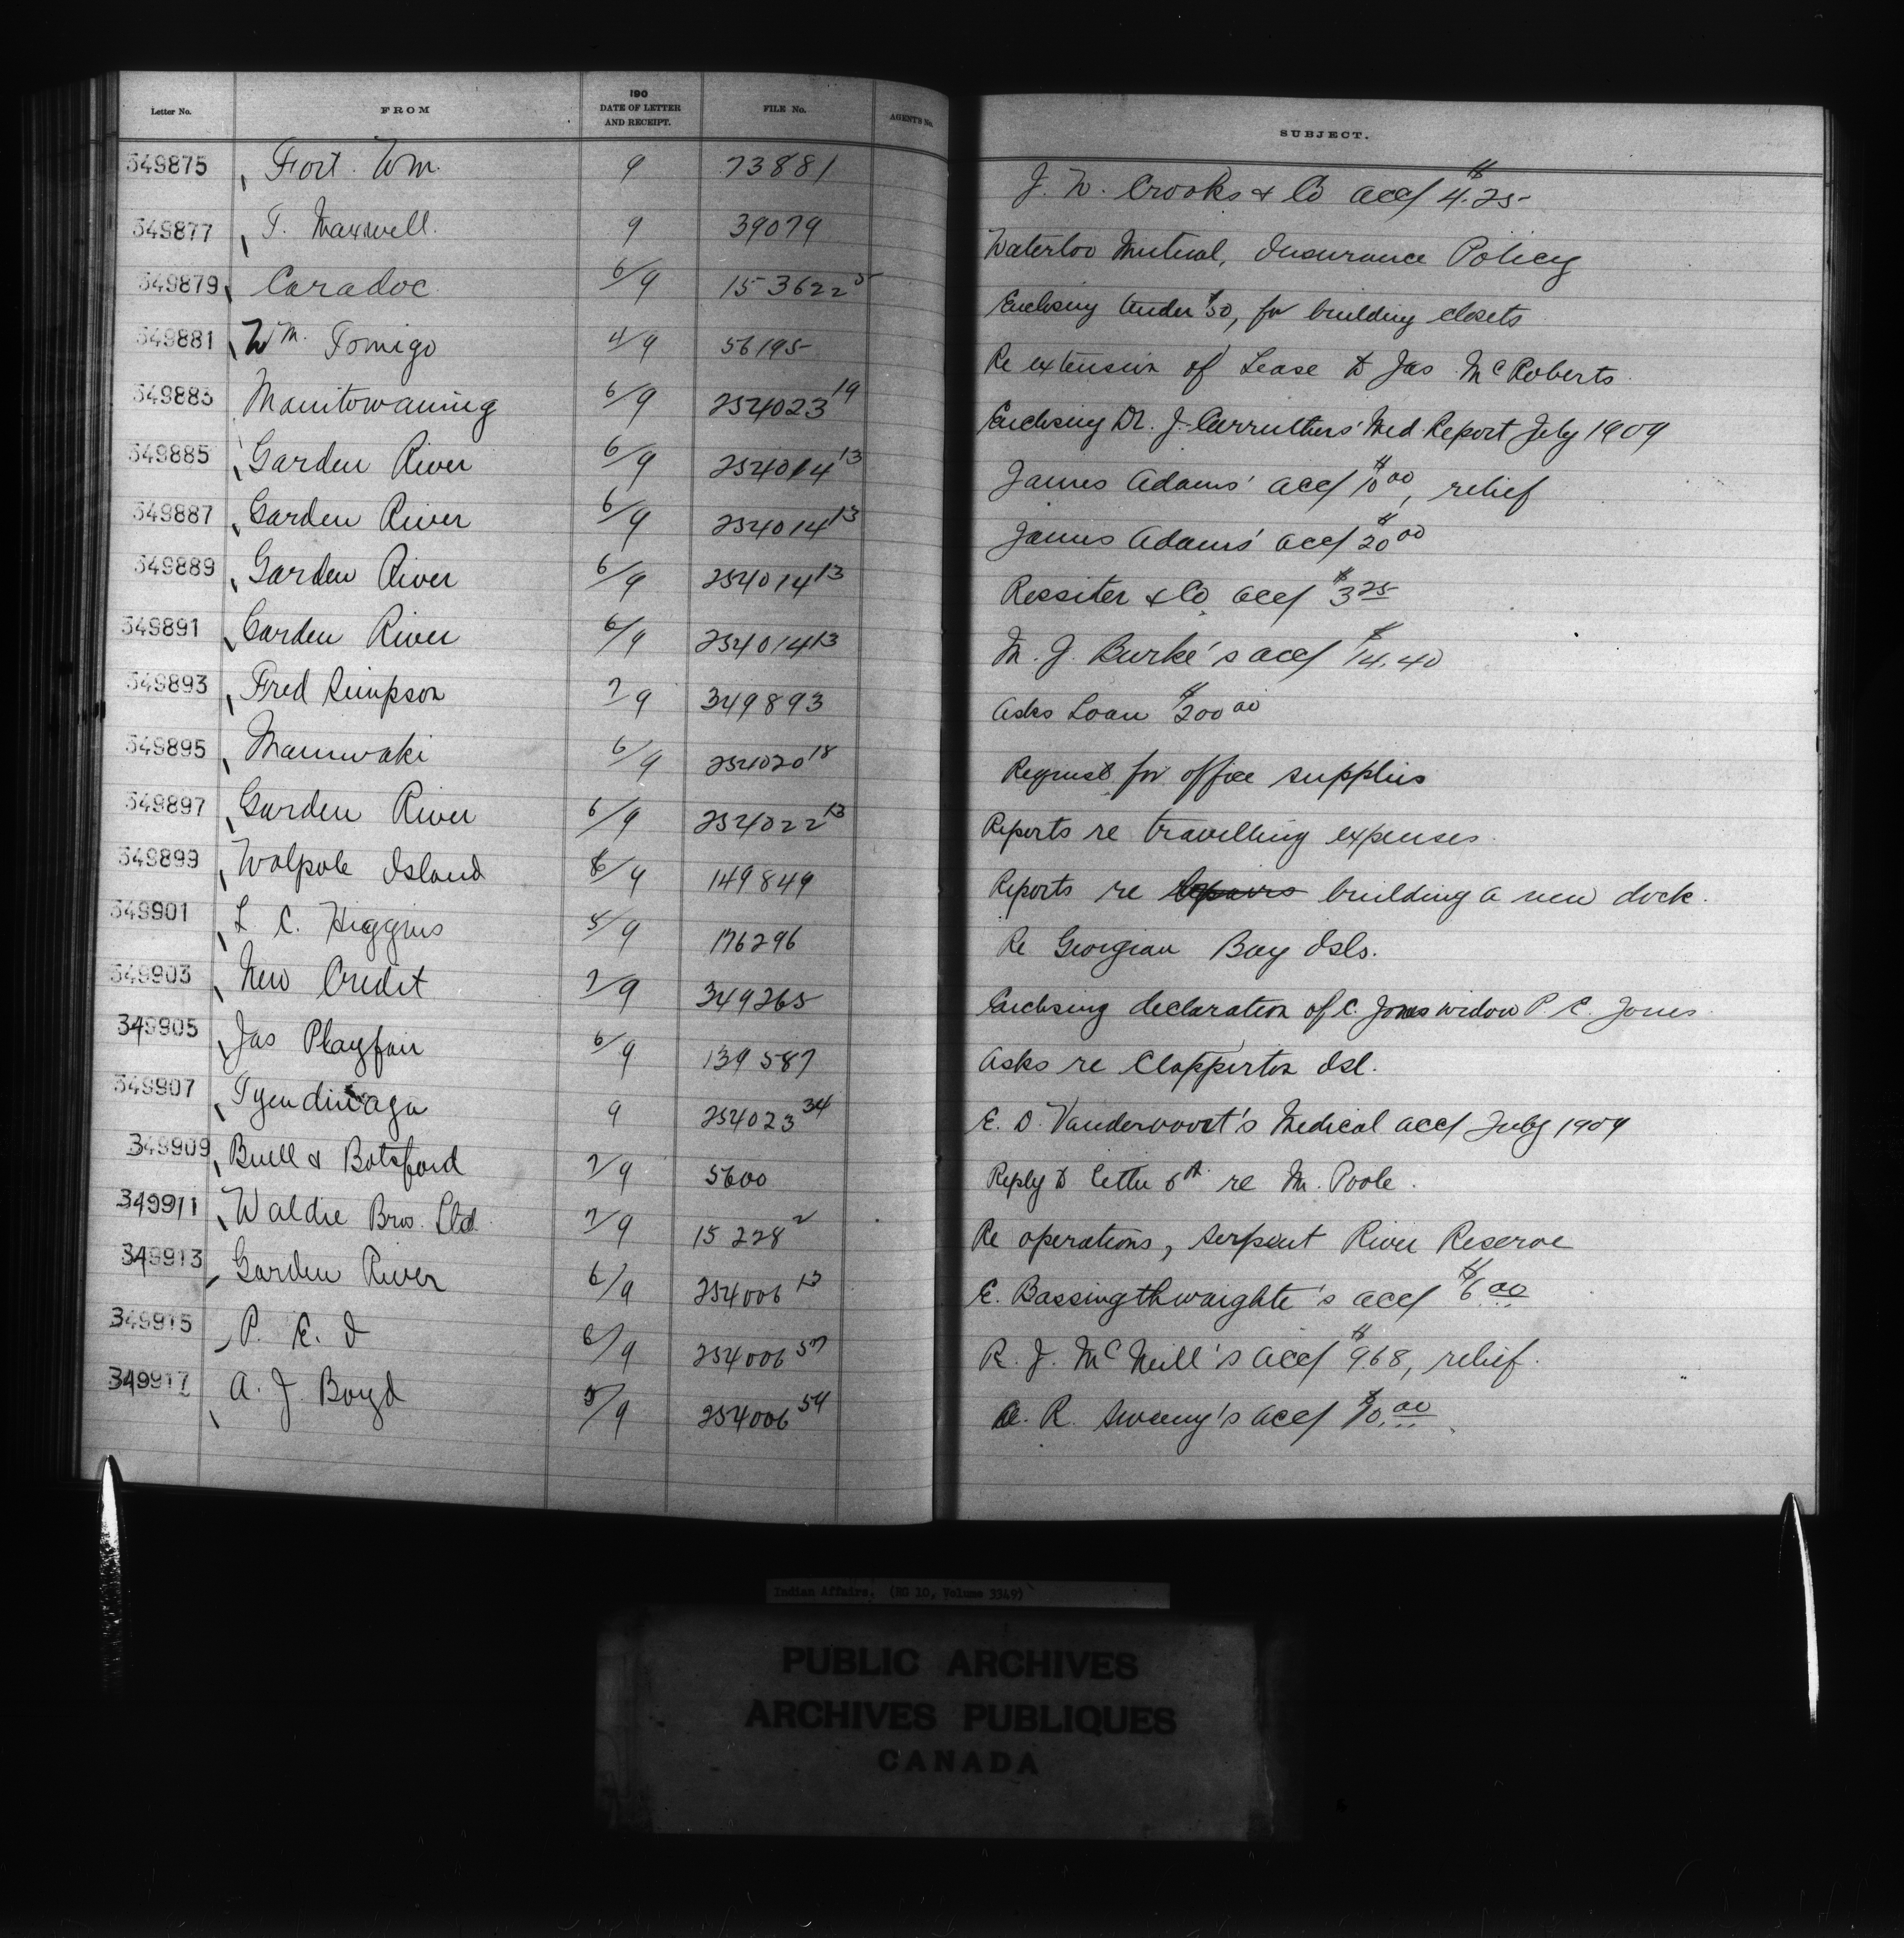 Letter No. FROM 190 DATE OF LETTER AND RECEIPT. FILE No. AGENT'S No. SUBJECT.
349875 Fort Wm. 9 73881 J. W. Crooks & Co acct $4.25
349877 T. Maxwell. 9 39079 Waterloo Mutual, Insurance Policy
349879 Caradoc 6/9 153622 5 Enclosing tender $50, for building closets
349881 Wm. Tomigo 4/9 56195 Re extension of Lease to Jas McRoberts
349883 Manitowaning 6/9 254023 19 Enclosing Dr. J. Carruthers' Med Report July 1909
349885 Garden River 6/9 254014 13 James Adams' acct $10 00, relief
349887 Garden River 6/9 254014 13 James Adams' acct $20 00
349889 Garden River 6/9 254014 13 Rossiter & Co acct $3 25
349891 Garden River 6/9 254014 13 M. J. Burke's acct $14.40
349893 Fred Simpson 7/9 349893 Asks Loan $200 00
349895 Maniwaki 6/9 254020 18 Request for office supplies
349897 Garden River 6/9 254022 13 Reports re travelling expenses
349899 Walpole Island 6/9 149849 Reports re repairs building a new dock.
349901 L. C. Higgins 5/9 176296 Re Georgian Bay Isls.
349903 New Credit 7/9 349265 Enclosing declaration of C. Jones widow P. C. Jones
349905 Jas Playfair 6/9 139587 Asks re Clapperton Isl.
349907 Tyendinaga 9 254023 34 E. D. Vandervoort's Medical acct July 1909
349909 Buell & Botsford 7/9 5600 Reply to letter 6th re M. Poole.
349911 Waldie Bros. Ltd 7/9 15228 2 Re operations, Serpent River Reserve
349913 Garden River 6/9 254006 13 E. Bassingthwaighte's acct $6 00
349915 P. E. I 6/9 254006 57 R. J. McNeill's acct $968, relief.
349917 A. J. Boyd 5/9 254006 54 A. R. Sweeny's acct $10.00
Indian Affairs. (RG 10, Volume 3349)
PUBLIC ARCHIVES
ARCHIVES PUBLIQUES
CANADA